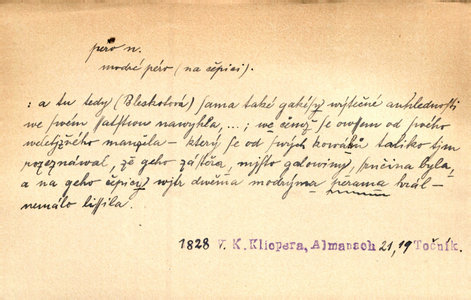 péro n.
modré péro (na čepici).
: a tu tedy (Bleskotová) sama také gakési wýtečné auhlednosti
we swém šatstwu nawykla, ...; we čemž se owsem od swého
welectěného manžela – který se od swých kowářů toliko tjm
rozeznáwal, že geho zástěra, mjsto galowiny, pučina byla,
a na geho čepicy wjtr dwěma modrýma pérama hrál –
nemálo lissila.
1828 V. K. Klicpera, Almanach 21, 19 Točník.